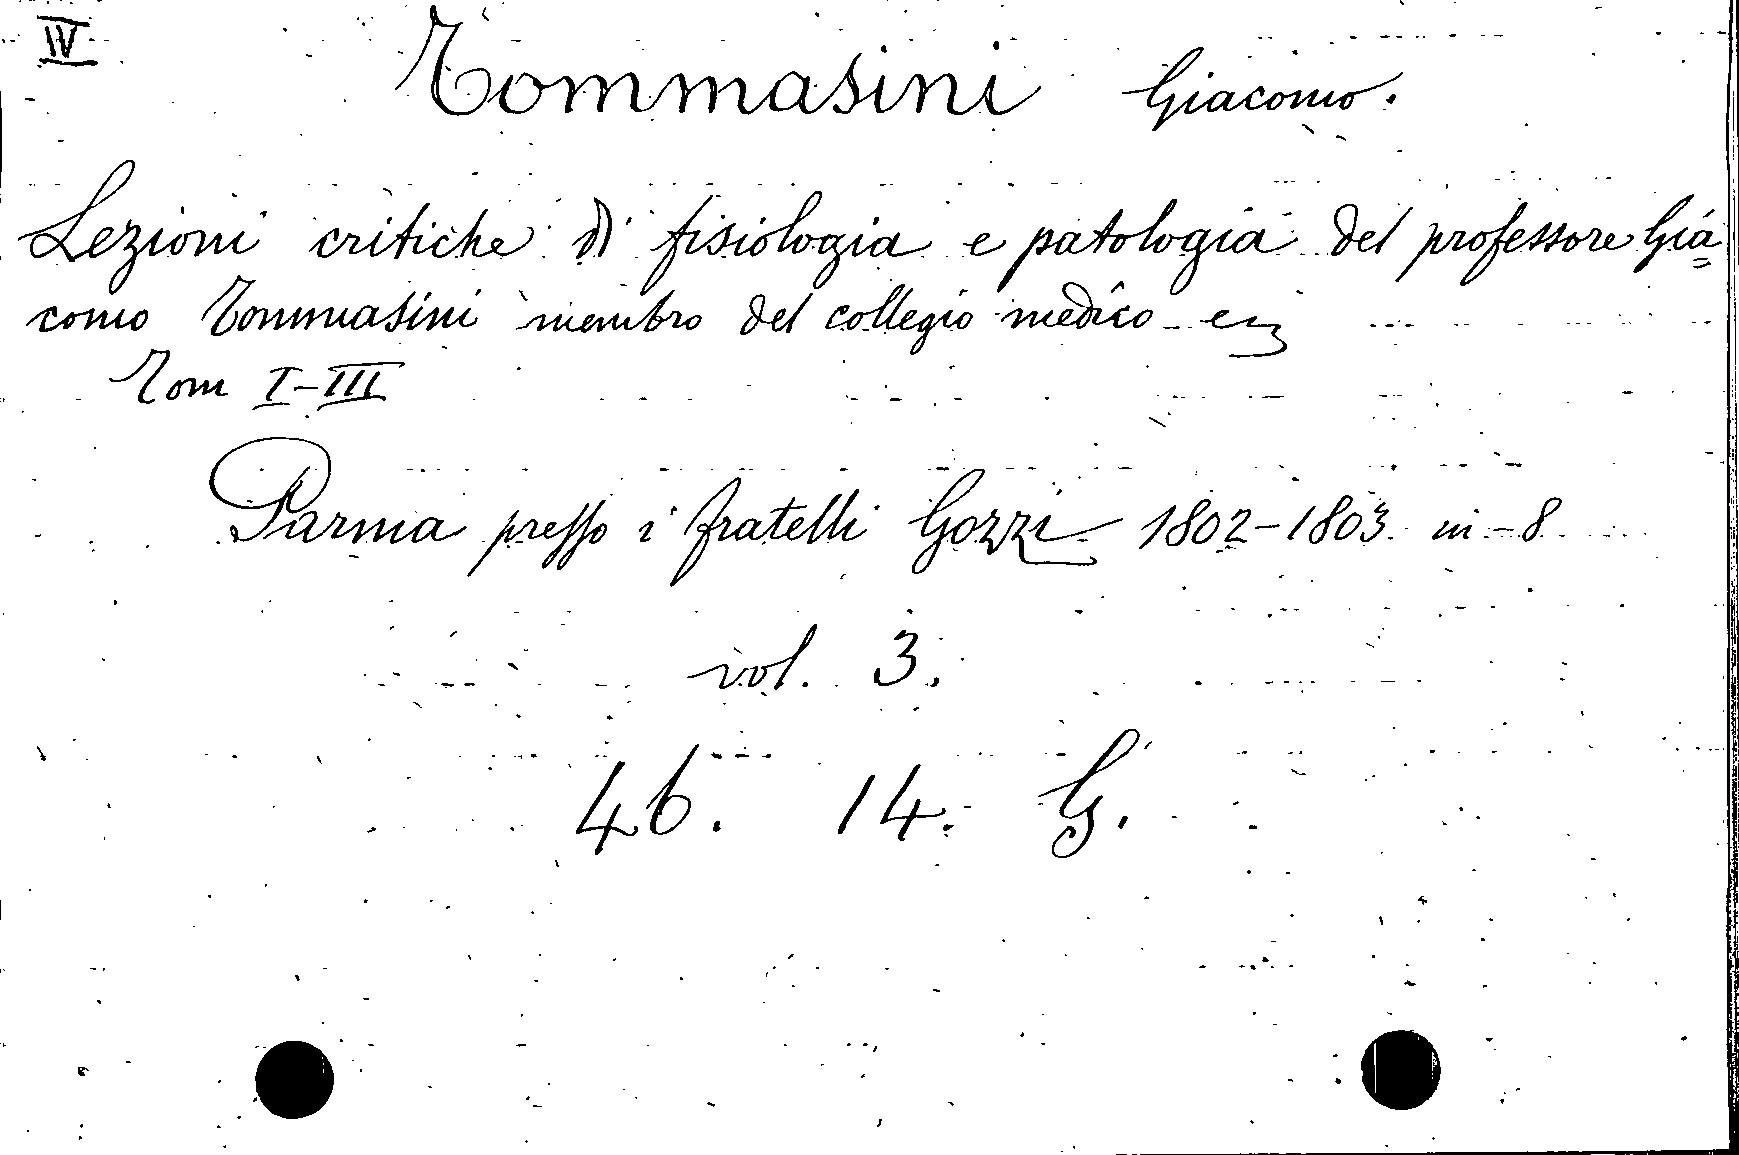 IV
Tommasini Giacomo.
Lezioni critiche di fisiologia e patologia del professore Gia=
como Tommasini membro del collegio medico ez
Tom I-III
Parma presso i fratelli Gozzi 1802-1803 in-8
vol. 3.
46. 14. G.